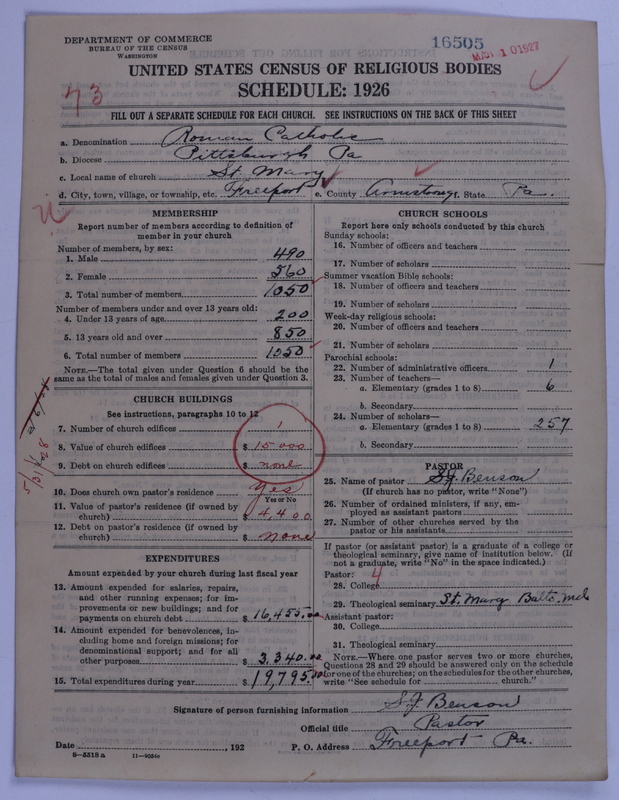 DEPARTMENT OF COMMERCE
BUREAU OF THE CENSUS
WASHINGTON
16505
MAY 10 1927
UNITED STATES CENSUS OF RELIGIOUS BODIES
SCHEDULE: 1926
73
FILL OUT A SEPARATE SCHEDULE FOR EACH CHURCH. SEE INSTRUCTIONS ON THE BACK OF THIS SHEET
a. Denomination Roman Catholic
b. Diocese Pittsburgh Pa
c. Local name of church St. Mary
d. City, town, village, or township, etc. Freeport e. County Armstrong f. State Pa.
MEMBERSHIP
Report number of members according to definition of
member in your church
Number of members, by sex:
1. Male 490
2. Female 560
3. Total number of members 1050
Number of members under and over 13 years old:
4. Under 13 years of age 200
5. 13 years old and over 850
6. Total number of members 1050
NOTE.—The total given under Question 6 should be the
same as the total of males and females given under Question 3.
CHURCH BUILDINGS
See instructions, paragraphs 10 to 12
7. Number of church edifices 1
8. Value of church edifices $ 15 000
9. Debt on church edifices $ none
10. Does church own pastor's residence Yes
Yes or No
11. Value of pastor's residence (if owned by
church) $ 4,400
12. Debt on pastor's residence (if owned by
church) $ none
EXPENDITURES
Amount expended by your church during last fiscal year
13. Amount expended for salaries, repairs,
and other running expenses; for im-
provements or new buildings; and for
payments on church debt $ 16,455.00
14. Amount expended for benevolences, in-
cluding home and foreign missions; for
denominational support; and for all
other purposes $ 3.340.00
15. Total expenditures during year $ 19,795.00
CHURCH SCHOOLS
Report here only schools conducted by this church
Sunday schools:
16. Number of officers and teachers
17. Number of scholars
Summer vacation Bible schools:
18. Number of officers and teachers
19. Number of scholars
Week-day religious schools:
20. Number of officers and teachers
21. Number of scholars
Parochial schools:
22. Number of administrative officers 1
23. Number of teachers—
a. Elementary (grades 1 to 8) 6
b. Secondary
24. Number of scholars—
a. Elementary (grades 1 to 8) 257
b. Secondary
PASTOR
25. Name of pastor S.J. Benson
(If church has no pastor, write "None")
26. Number of ordained ministers, if any, em-
ployed as assistant pastors
27. Number of other churches served by the
pastor or his assistants
If pastor (or assistant pastor) is a graduate of a college or
theological seminary, give name of institution below. (If
not a graduate, write "No" in the space indicated.)
Pastor: 4
28. College
29. Theological seminary St. Mary Balto. Md
Assistant pastor:
30. College
31. Theological seminary
NOTE.—Where one pastor serves two or more churches,
Questions 28 and 29 should be answered only on the schedule
for one of the churches; on the schedules for the other churches,
write "See schedule for church."
Signature of person furnishing information S.J. Benson
Official title Pastor
Date , 192 P. O. Address Freeport Pa.
8—5518 a 11—9056c